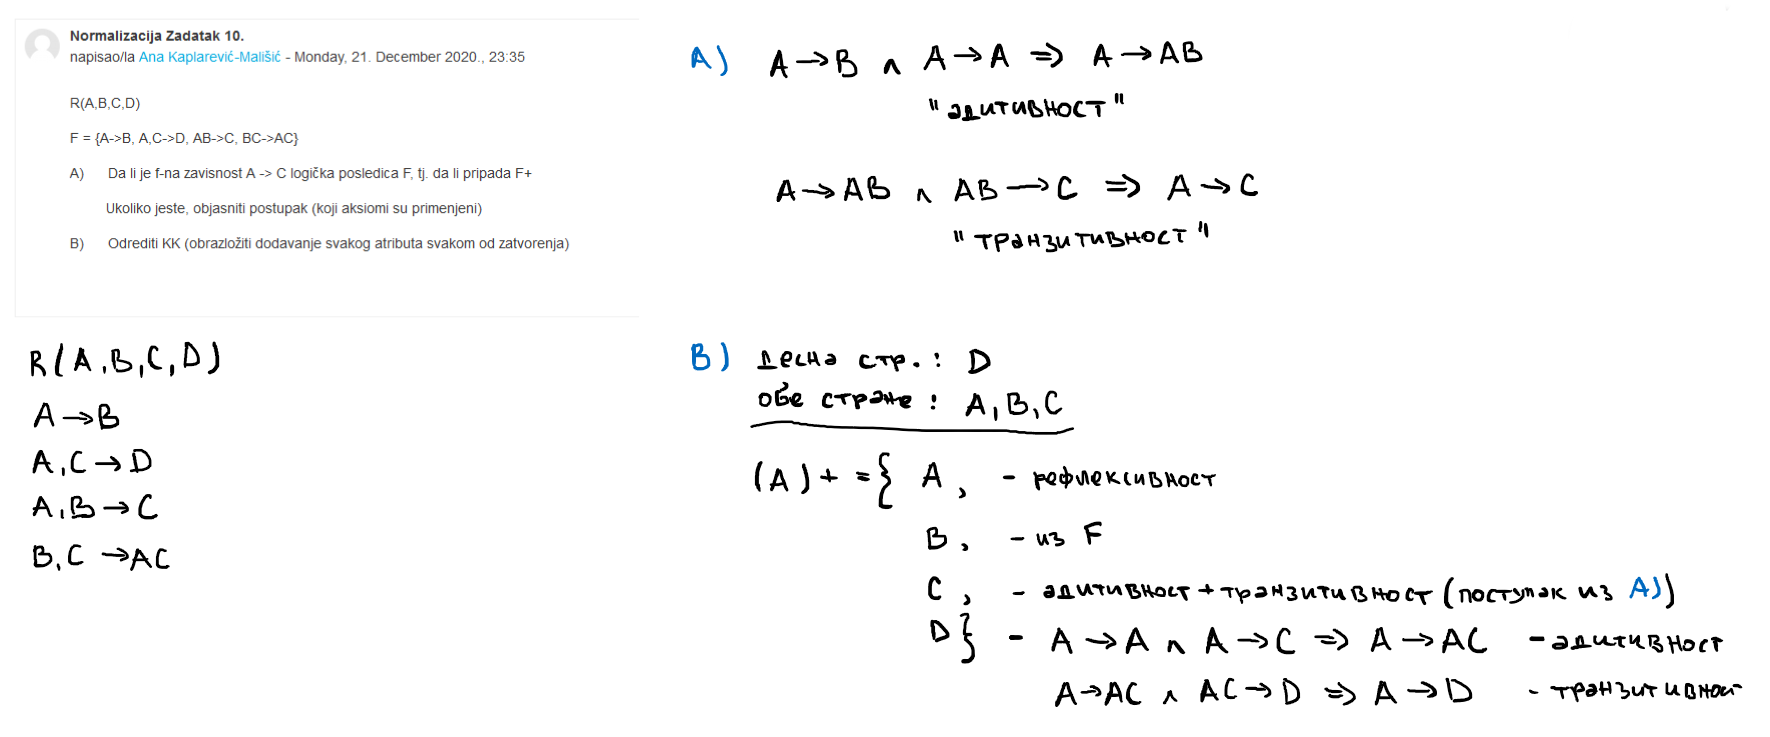 Normalizacija Zadatak 10.
napisao/la Ana Kaplarević-Mališić - Monday, 21. December 2020., 23:35
R(A,B,C,D)
F = {A->B, A,C->D, AB->C, BC->AC}
A) Da li je f-na zavisnost A -> C logička posledica F, tj. da li pripada F+
Ukoliko jeste, objasniti postupak (koji aksiomi su primenjeni)
B) Odrediti KK (obrazložiti dodavanje svakog atributa svakom od zatvorenja)
R(A,B,C,D)
A→B
A,C→D
A,B→C
B,C→AC
A) A→B ∧ A→A ⇒ A→AB
"адитивност"
A→AB ∧ AB→C ⇒ A→C
"транзитивност"
B) десна стр.: D
обе стране: A,B,C
(A)+ = { A, - рефлексивност
B, - из F
C, - адитивност+транзитивност (поступак из A))
D} - A→A ∧ A→C ⇒ A→AC - адитивност
A→AC ∧ AC→D ⇒ A→D - транзитивност